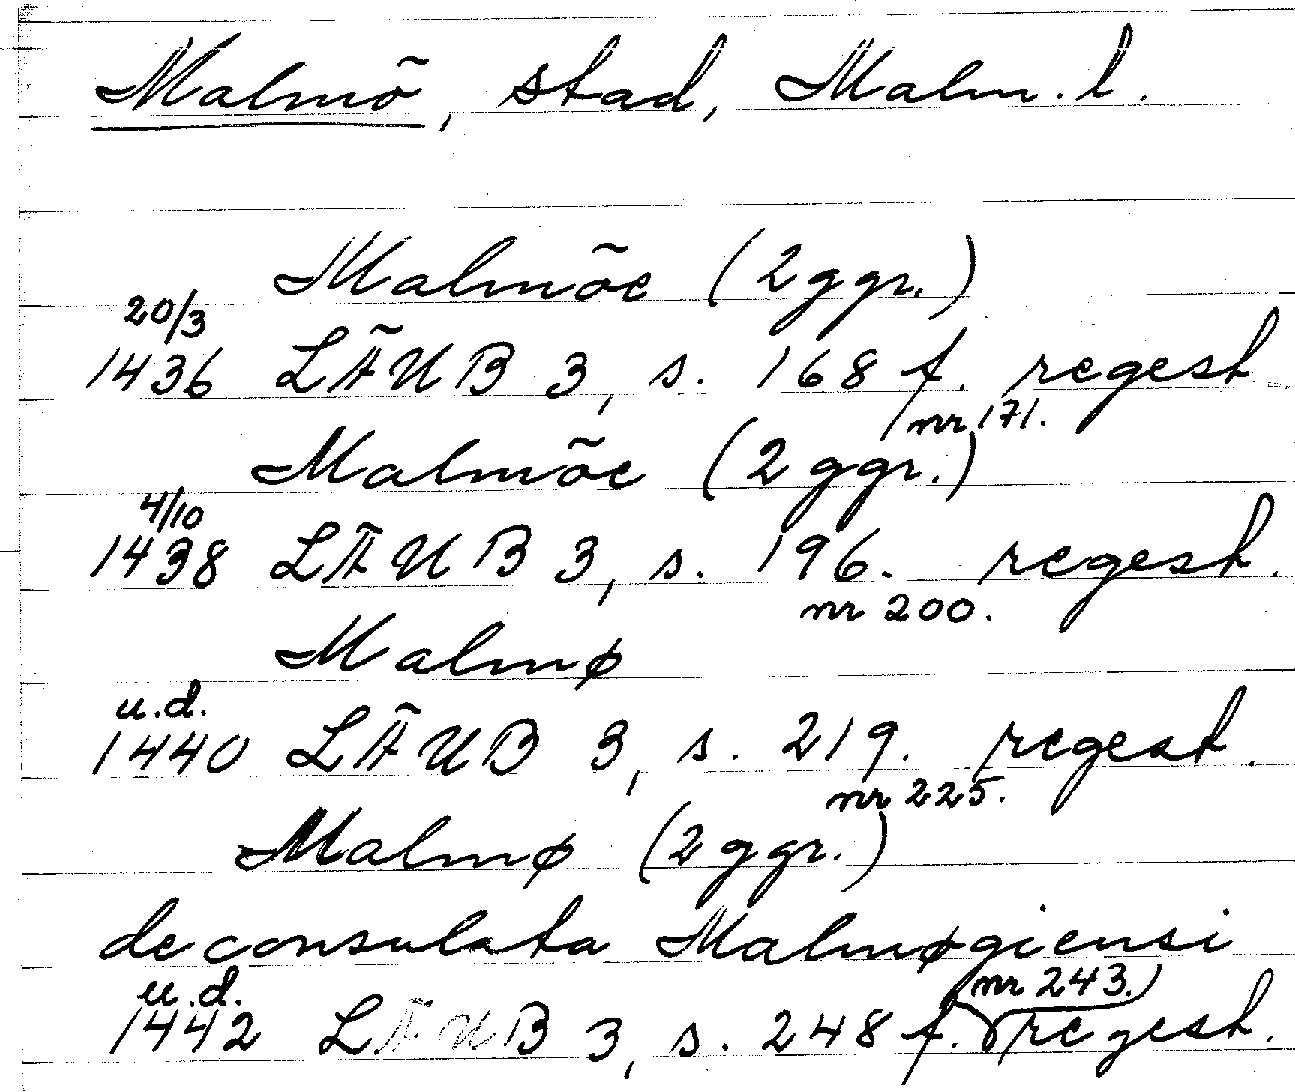 Malmö, stad, Malm. l.
Malmöe (2 ggr.)
20/3
1436 LÄUB 3, s. 168 f. regest
nr 171.
Malmöe (2 ggr.)
4/10
1438 LÄUB 3, s. 196. regest.
nr 200.
Malmø
u.d.
1440 LÄUB 3, s. 219. regest.
nr 225.
Malmø (2 ggr.)
de consulata Malmøgiensi
u.d.
nr 243.
1442 LÄUB 3, s. 248 f. regest.